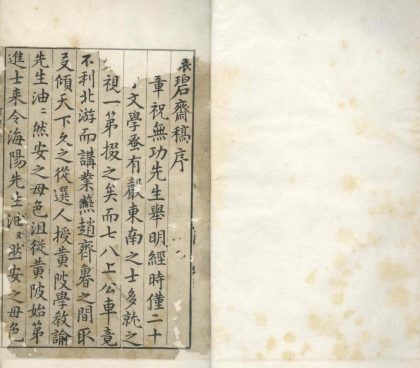 衷碧齋稿序
章祝無功先生舉明經時僅二十
文學蚤有聲東南之士多就之
視一第掇之矣而七八上公車竟
不利北游而講業燕趙齊魯之間取
友傾天下久之從選人授黃陂學教諭
先生油〻然安之毋色沮從黃陂始第
進士来令海陽先生油〻然安之毋色